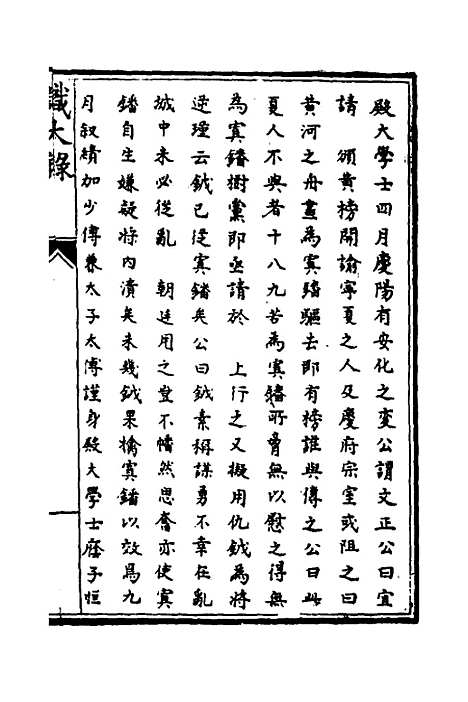 殿大學士四月慶陽有安化之變公謂文正公曰宜
請　頒黃榜開諭寧夏之人及慶府宗室或阻之曰
黃河之舟盡為寘鐇驅去即有榜誰與傳之公曰此
夏人不與者十八九苦為寘鐇所脅無以慰之得無
為寘鐇樹黨即亟請於　上行之又擬用仇鉞為將
逆瑾云鉞已從寘鐇矣公曰鉞素稱謀勇不幸在亂
城中未必從亂　朝廷用之豈不幡然思奮亦使寘
鐇自生嫌疑將內潰矣未幾鉞果擒寘鐇以效焉九
月叙績加少傅兼太子太傅謹身殿大學士廕子恒
識大錄